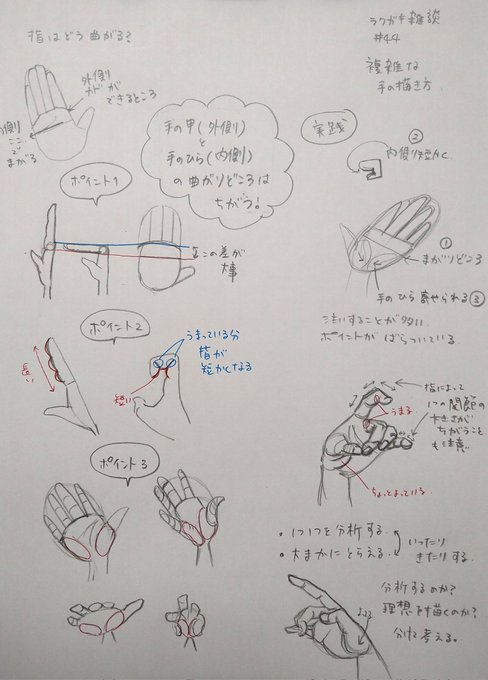 指はどう曲がる?
ラクガキ雑談
#44
複雑な
手の描き方
外側
カドが
できるところ
内側
ここ
で
まがる
手の甲(外側)
と
手のひら(内側)
の曲がりどころは
ちがう!
実践
②
内側は短かく
ポイント1
この差が
大事
①
まがりどころ
手のひら寄せられる③
注意することが多い
ポイントがばらついている。
ポイント2
長い
短い
うまっている分
指が
短かくなる
指によって
1つの関節の
大きさが
ちがうこと
も注意
うまる
ちょっとまっている
ポイント3
・1つ1つを分析する。
・大まかにとらえる。
いったり
きたりする。
分析するのか?
理想を描くのか?
分けて考える。